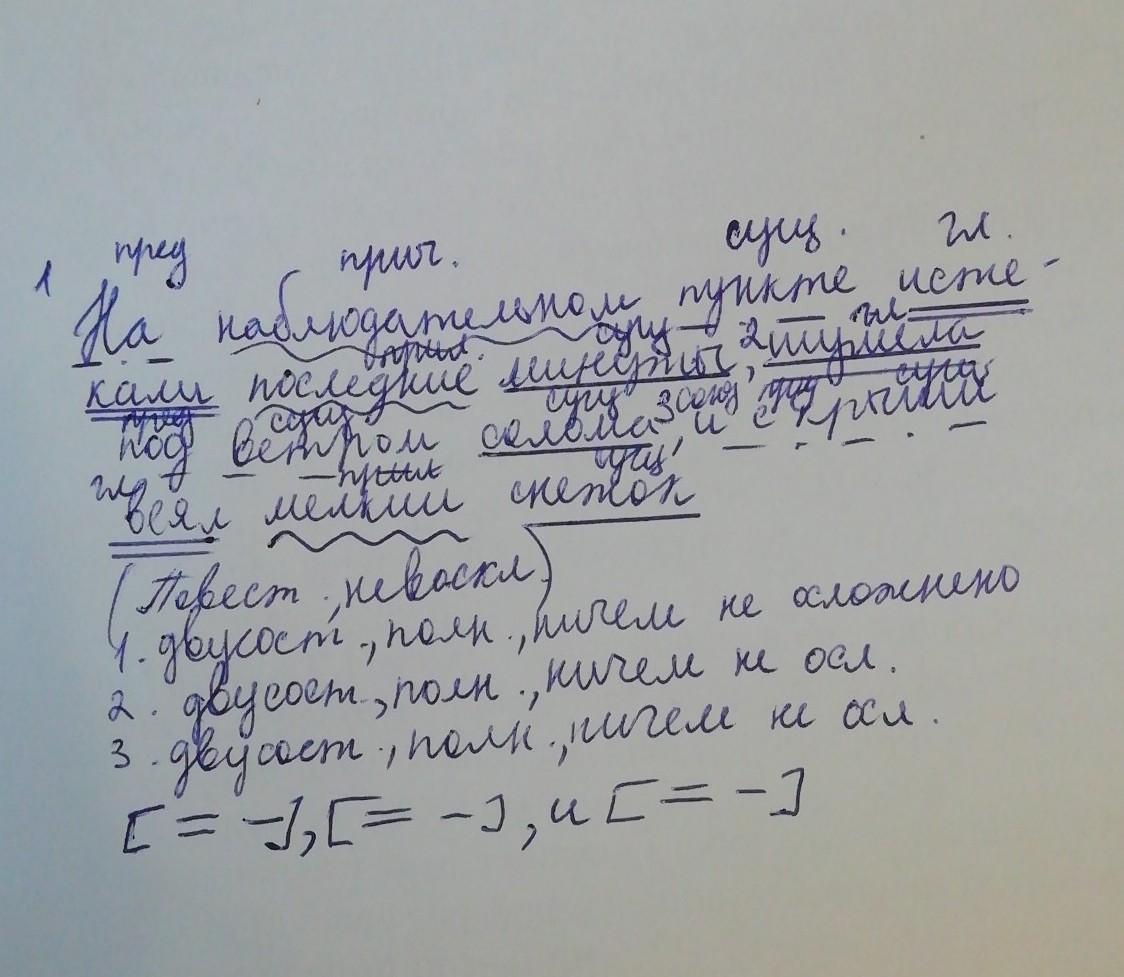 пред прич. сущ. гл.
1 На наблюдательном пункте исте-
прил. сущ 2 гл
ками последние минуты, шумела
пред сущ сущ 3 союз пред сущ
под ветром солома, и с крыши
гл прил сущ
веял мелкий снежок
(Повест., невоскл)
1. двусост., полн., ничем не осложнено
2. двусост., полн., ничем не осл.
3. двусост., полн., ничем не осл.
[= -], [= -], и [= -]